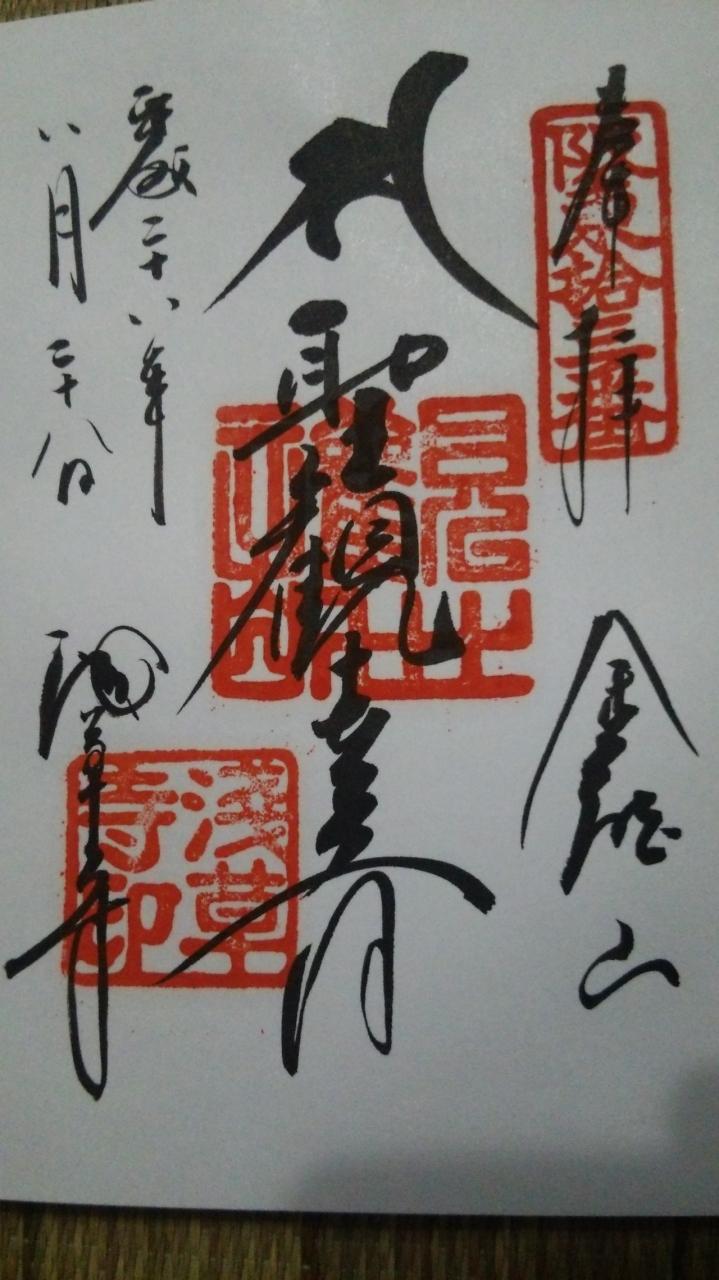 奉拝
阪東拾三番
金龍山
聖観世音
平成二十八年
八月二十八日
浅草寺
浅草
寺印